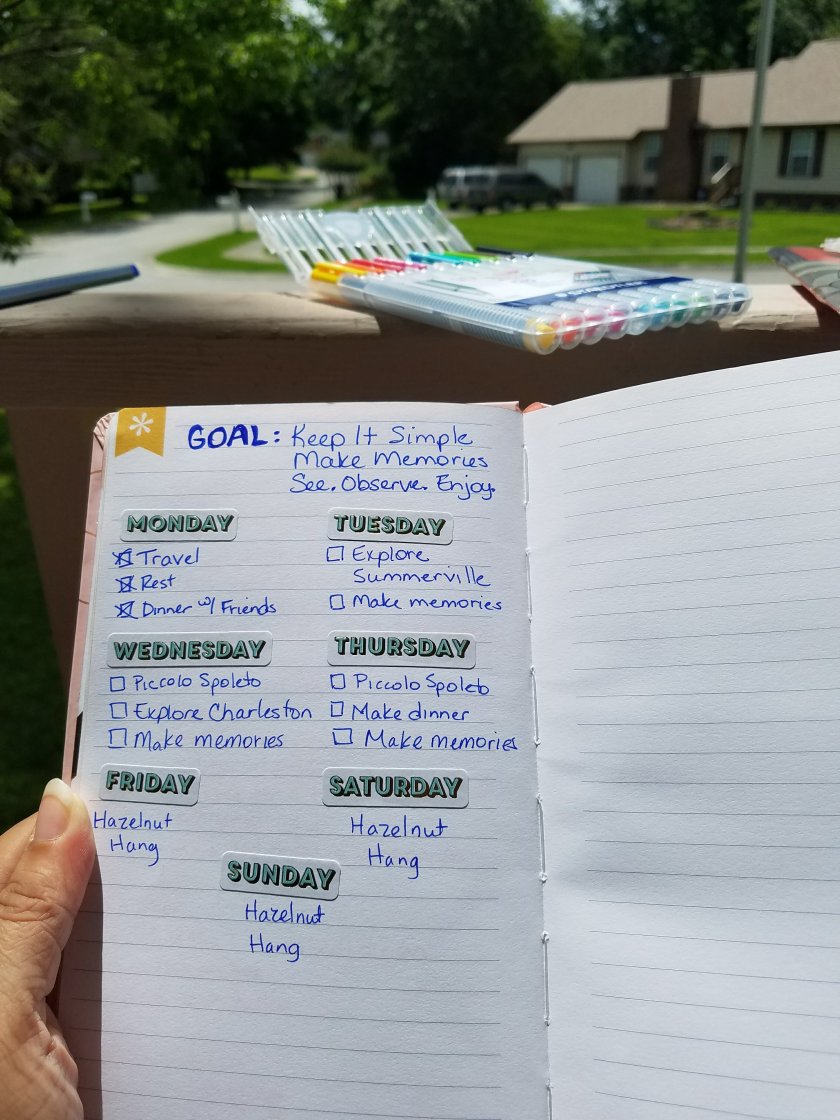 GOAL: Keep It Simple
Make Memories
See. Observe. Enjoy.
MONDAY
Travel
Rest
Dinner w/ Friends
TUESDAY
Explore
Summerville
Make memories
WEDNESDAY
Piccolo Spoleto
Explore Charleston
Make memories
THURSDAY
Piccolo Spoleto
Make dinner
Make memories
FRIDAY
Hazelnut
Hang
SATURDAY
Hazelnut
Hang
SUNDAY
Hazelnut
Hang